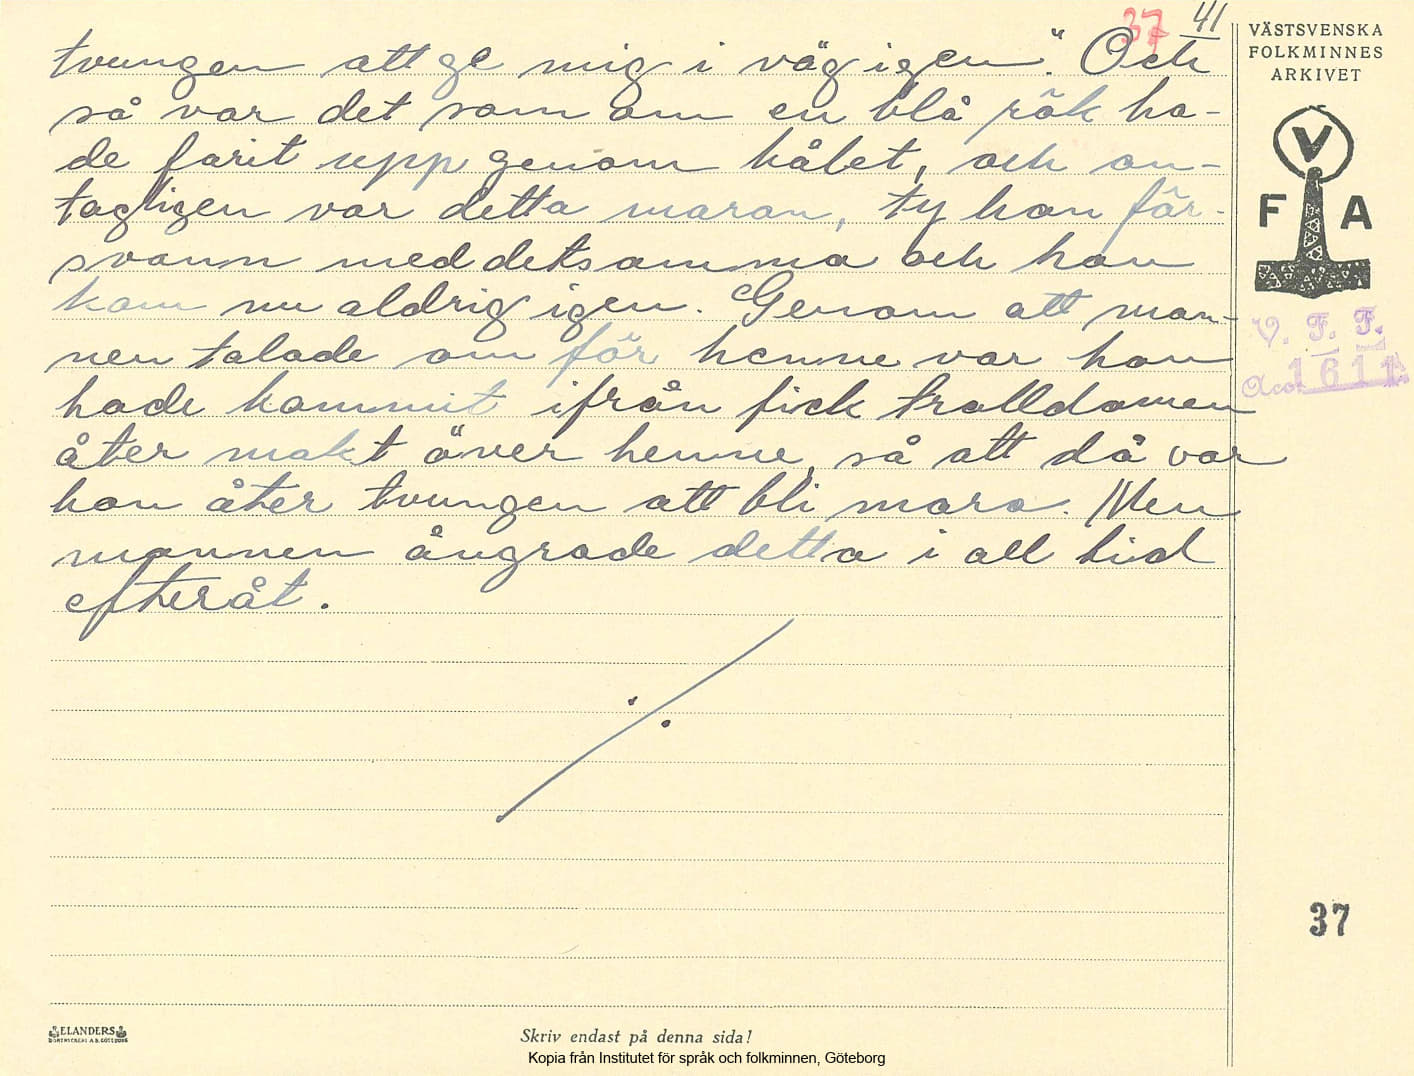 37 41
tvungen att ge mig i väg igen". Och
så var det som om en blå rök ha-
de farit upp genom hålet, och an-
tagligen var detta maran, ty hon för-
svann med detsamma och hon
kom nu aldrig igen. Genom att man-
nen talade om för henne var hon
hade kommit ifrån fick trolldomen
åter makt över henne, så att då var
hon åter tvungen att bli mara. Men
mannen ångrade detta i all tid
efteråt.
VÄSTSVENSKA
FOLKMINNES
ARKIVET
V
F A
V. F. F.
Acc. 1611
37
ELANDERS
Skriv endast på denna sida!
Kopia från Institutet för språk och folkminnen, Göteborg